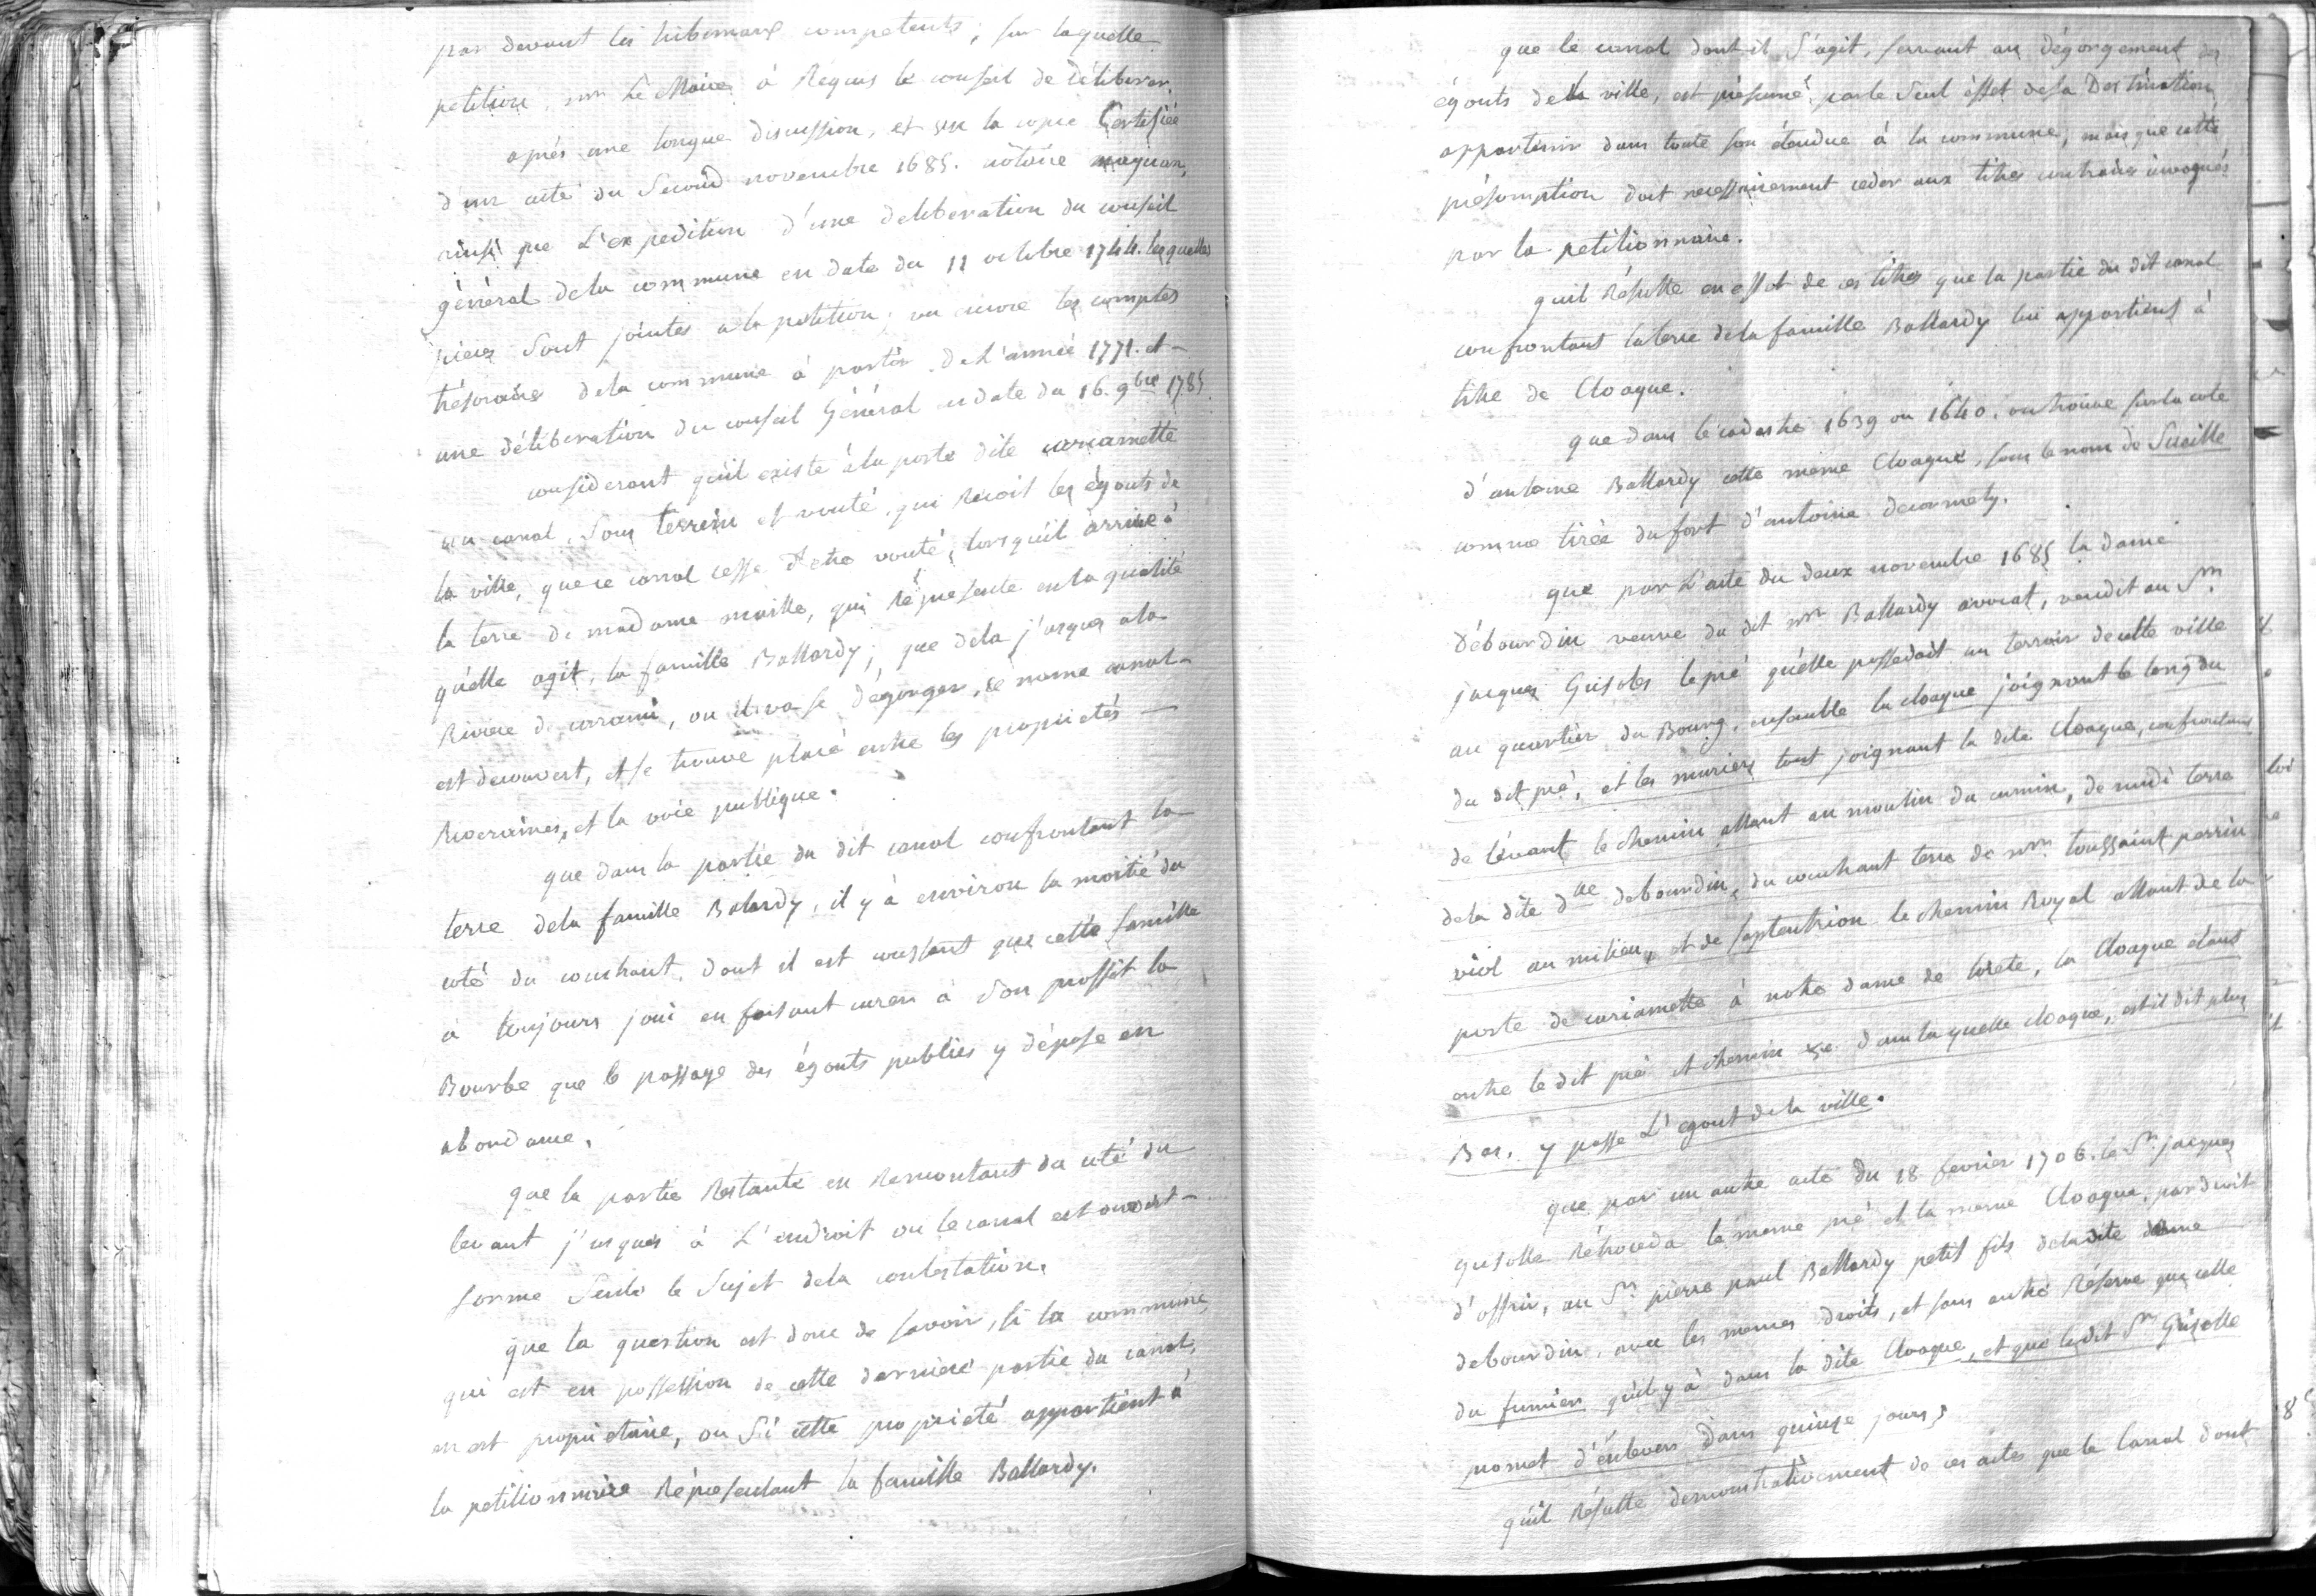 par devant les tribunaux competents, sur laquelle
petition, mr Le Maire à Requis le conseil de déliberer.
après une longue discussion, et vu la copie Certifiée
d'un acte du Second novembre 1685. nôtaire maquan,
ainsi que L'expedition d'une deliberation du conseil
général dela commune en date du 11 octobre 1744. lesquelles
pieces Sont jointes a la petition; vu encore les comptes
trésoraires dela commune à partir de L'année 1771. et
une déliberation du conseil Général en date du 16. 9bre 1785.
considerant qu'il existe à la porte dite cariamette
un canal, Sous terrein et vouté, qui Recoit les égouts de
la ville, que ce canal cesse d'etre vouté, lorsqu'il arrive à
la terre de madame maille, qui Répresente en la qualité
qu'elle agit, la famille Ballardy; que dela j'usques a la
Riviere de carami, ou il va se dégorger, ce meme canal
est decouvert, et se trouve placé entre les proprietés
Riveraines, et la voie publique.
que dans la partie du dit canal confrontant la
terre dela famille Balardy, il y à environ la moitié du
coté du couchant, dont il est constant que cette famille
à toujours joui en faisant curer à son proffit la
Bourbe que le passage des égouts publics y dépose en
abondance.
que la partie Restante en Remontant du coté du
levant j'usques à L'endroit ou le canal est ouvert
forme Seule le Sujet dela contestation.
que la question est donc de savoir, si la commune,
qui est en possession de cette derniere partie du canal,
en est proprietaire, ou Si cette proprieté appartient à
la petitionnaire Répresentant la famille Ballardy.
que le canal dont-il S'agit, servant au dégorgement des
égouts dela ville, est présumé, par le Seul éffet de sa Destination
appartenir dans toute son étendue à la commune; mais que cette
présomption doit necessairement ceder aux titres contraires invoqués
par la petitionnaire.
qu'il Résulte en effet de ces titres que la partie du dit canal
confrontant la terre dela famille Ballardy lui appartient à
titre de Cloaque.
que dans le cadastre 1639 ou 1640. on trouve sur la cote
d'antoine Ballardy cette meme Cloaque, sous le nom de Sueille
comme tirée du fort d'antoine decormety.
que par L'acte du deux novembre 1685 la dame
Débourdin veuve du dit mr Ballardy avocat, vendit au Sr
jacques Grisoles le pré qu'elle possedoit au terroir de cette ville
au quartier du Bourg, ensemble la cloaque joignant le long du
du dit pré, et les muriers tout joignant la dite Cloaque, confrontant
de levant le chemin allant au moulin du cumin, de midi terre
dela dite dlle debourdin, du couchant terre de mr toussaint perrin
viol au milieu, et de septentrion le chemin Royal allant de la
porte de cariamette à notre dame de lorete, la Cloaque étant
entre le dit pré et chemin &c. dans laquelle cloaque, est-il dit plus
Bas, y passe L'egout dela ville.
que par un autre acte du 18 fevrier 1706. le Sr jacques
grisolle Rétroceda le meme pré et la meme Cloaque, par droit
d'offrir, au Sr pierre paul Ballardy petit fils dela dite dame
debourdin, avec les memes droits, et sans autre Réserve que celle
du fumier qu'il y à dans la dite Cloaque, et que ledit Sr Grisolle
promet d'enlever dans quinze jours,
qu'il Résulte demonstrativement de ces actes que le Canal dont